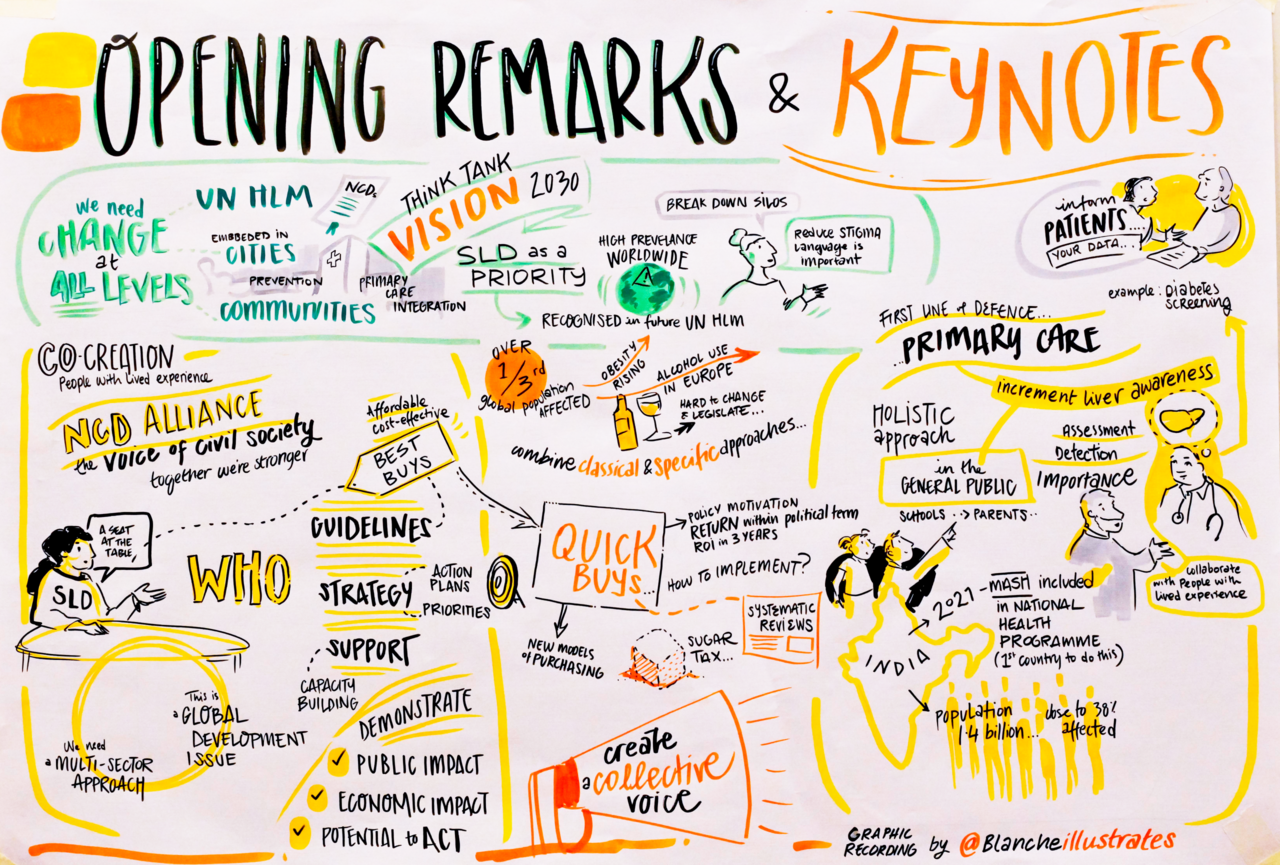 OPENING REMARKS & KEYNOTES
We need
CHANGE
at
ALL LEVELS
UN HLM
EMBEDDED IN
CITIES
PREVENTION
COMMUNITIES
NCDs
PRIMARY
CARE
INTEGRATION
THINK TANK
VISION 2030
SLD as a
PRIORITY
RECOGNISED in future UN HLM
HIGH PREVELANCE
WORLDWIDE
BREAK DOWN SILOS
REDUCE STIGMA
Language is
important
inform
PATIENTS....
YOUR DATA...
example: Diabetes
SCREENING
CO-CREATION
People with Lived experience
NCD ALLIANCE
the VOICE of CIVIL SOCIETY
together we're stronger
Affordable
cost-effective
BEST
BUYS
A SEAT
AT THE
TABLE,
SLD
WHO
GUIDELINES
STRATEGY
ACTION
PLANS
PRIORITIES
SUPPORT
CAPACITY
BUILDING
We need
a MULTI-SECTOR
APPROACH
This is
a GLOBAL
DEVELOPMENT
ISSUE
DEMONSTRATE
PUBLIC IMPACT
ECONOMIC IMPACT
POTENTIAL to ACT
OVER
1/3rd
global population
AFFECTED
OBESITY
RISING
ALCOHOL USE
IN EUROPE
HARD to CHANGE
& LEGISLATE...
combine classical & specific approaches...
QUICK
BUYS...
POLICY MOTIVATION
RETURN within political term
ROI in 3 YEARS
HOW TO IMPLEMENT?
NEW MODELS
of PURCHASING
SUGAR
TAX...
SYSTEMATIC
REVIEWS
create
a collective
voice
FIRST LINE of DEFENCE...
...PRIMARY CARE
increment liver awareness
HOLISTIC
approach
in the
GENERAL PUBLIC
SCHOOLS ..> PARENTS..
Assessment
Detection
Importance
collaborate
with People with
lived experience
INDIA
2021 - MASH included
in NATIONAL
HEALTH
PROGRAMME
(1st country to do this)
population
1.4 billion...
close to 38%
affected
GRAPHIC
RECORDING by @Blancheillustrates